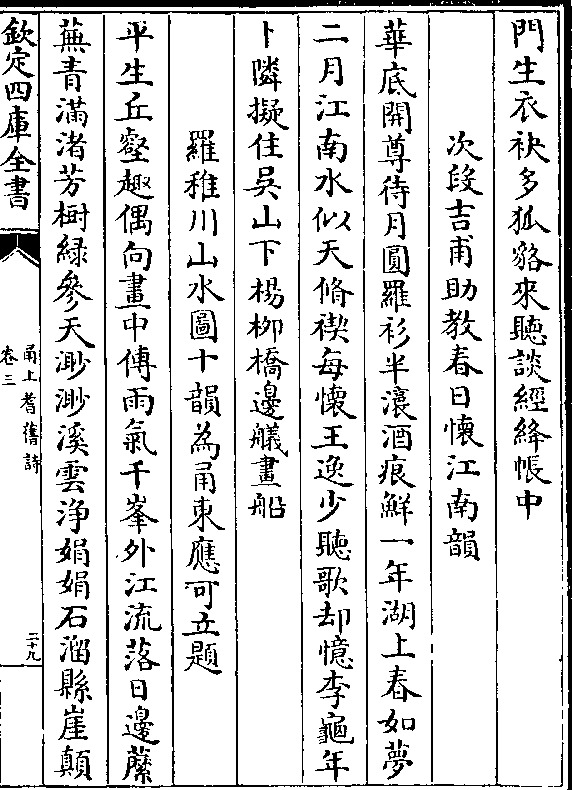 門生衣袂多狐貉來聽談經絳帳中
次段吉甫助教春日懷江南韻
華底開尊待月圓羅衫半濕酒痕鮮一年湖上春如夢
二月江南水似天脩禊每懷王逸少聽歌却憶李龜年
卜隣擬住吳山下楊栁橋邊艤畫船
羅稚川山水圖十韻為甬東應可立題
平生丘壑趣偶向畫中傳雨氣千峯外江流落日邊蘪
蕪青滿渚芳樹緑參天渺渺溪雲淨娟娟石溜縣崖顛
欽定四庫全書
甬上耆舊詩
卷三
二十九